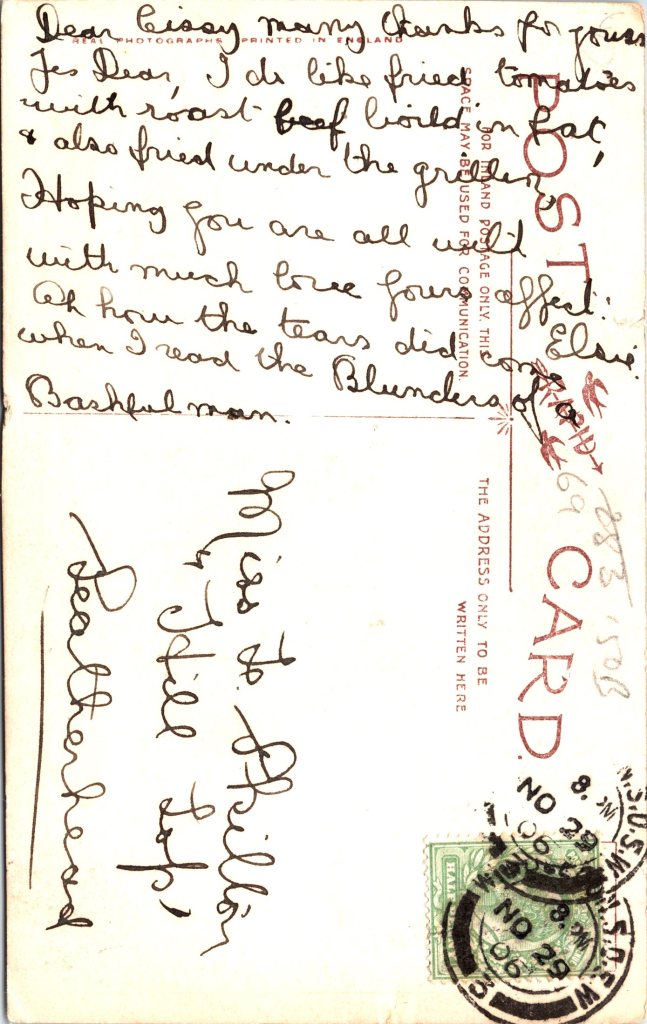 Dear Cissy many thanks for yours
REAL PHOTOGRAPHS PRINTED IN ENGLAND
Yes Dear, I do like fried tomatoes
with roast beef boild in fat,
& also fried under the griller,
Hoping you are all well
with much love yours affect:
Elsie.
Oh how the tears did come
when I read the Blunders of a
Bashful man.
POST CARD.
FOR INLAND POSTAGE ONLY, THIS
SPACE MAY BE USED FOR COMMUNICATION.
THE ADDRESS ONLY TO BE
WRITTEN HERE
Miss F. Skilton
Hill Top,
Leatherhead
69
283
'50B
8. PM
NO 29
06
8. PM
NO 29
06
HALF